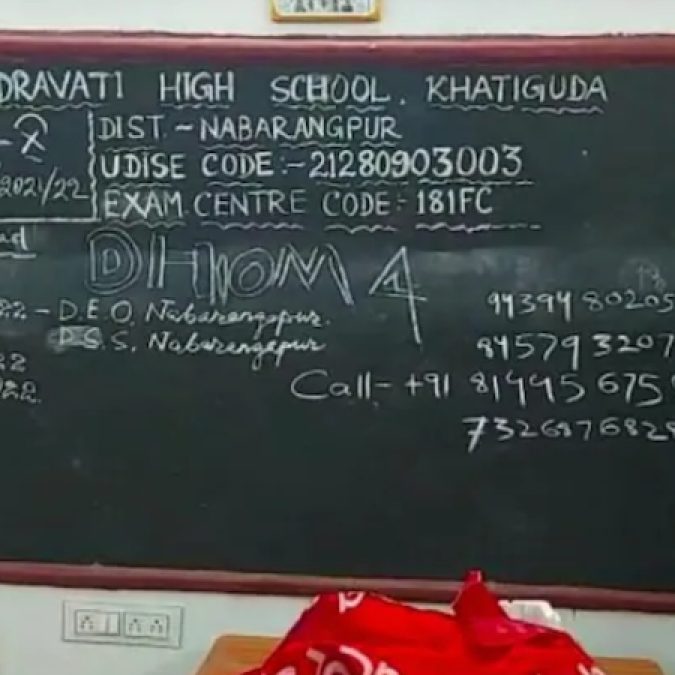 DRAVATI HIGH SCHOOL. KHATIGUDA
DIST. ~ NABARANGPUR
2021/22
UDISE CODE:- 21280903003
EXAM CENTRE CODE:- 181FC
DHOOM 4
22 - D.E.O. Nabarangapur.
D.S.S. Nabarangapur
22
22.
94394 80205
845793207
Call- +91 81445 675
7326876828